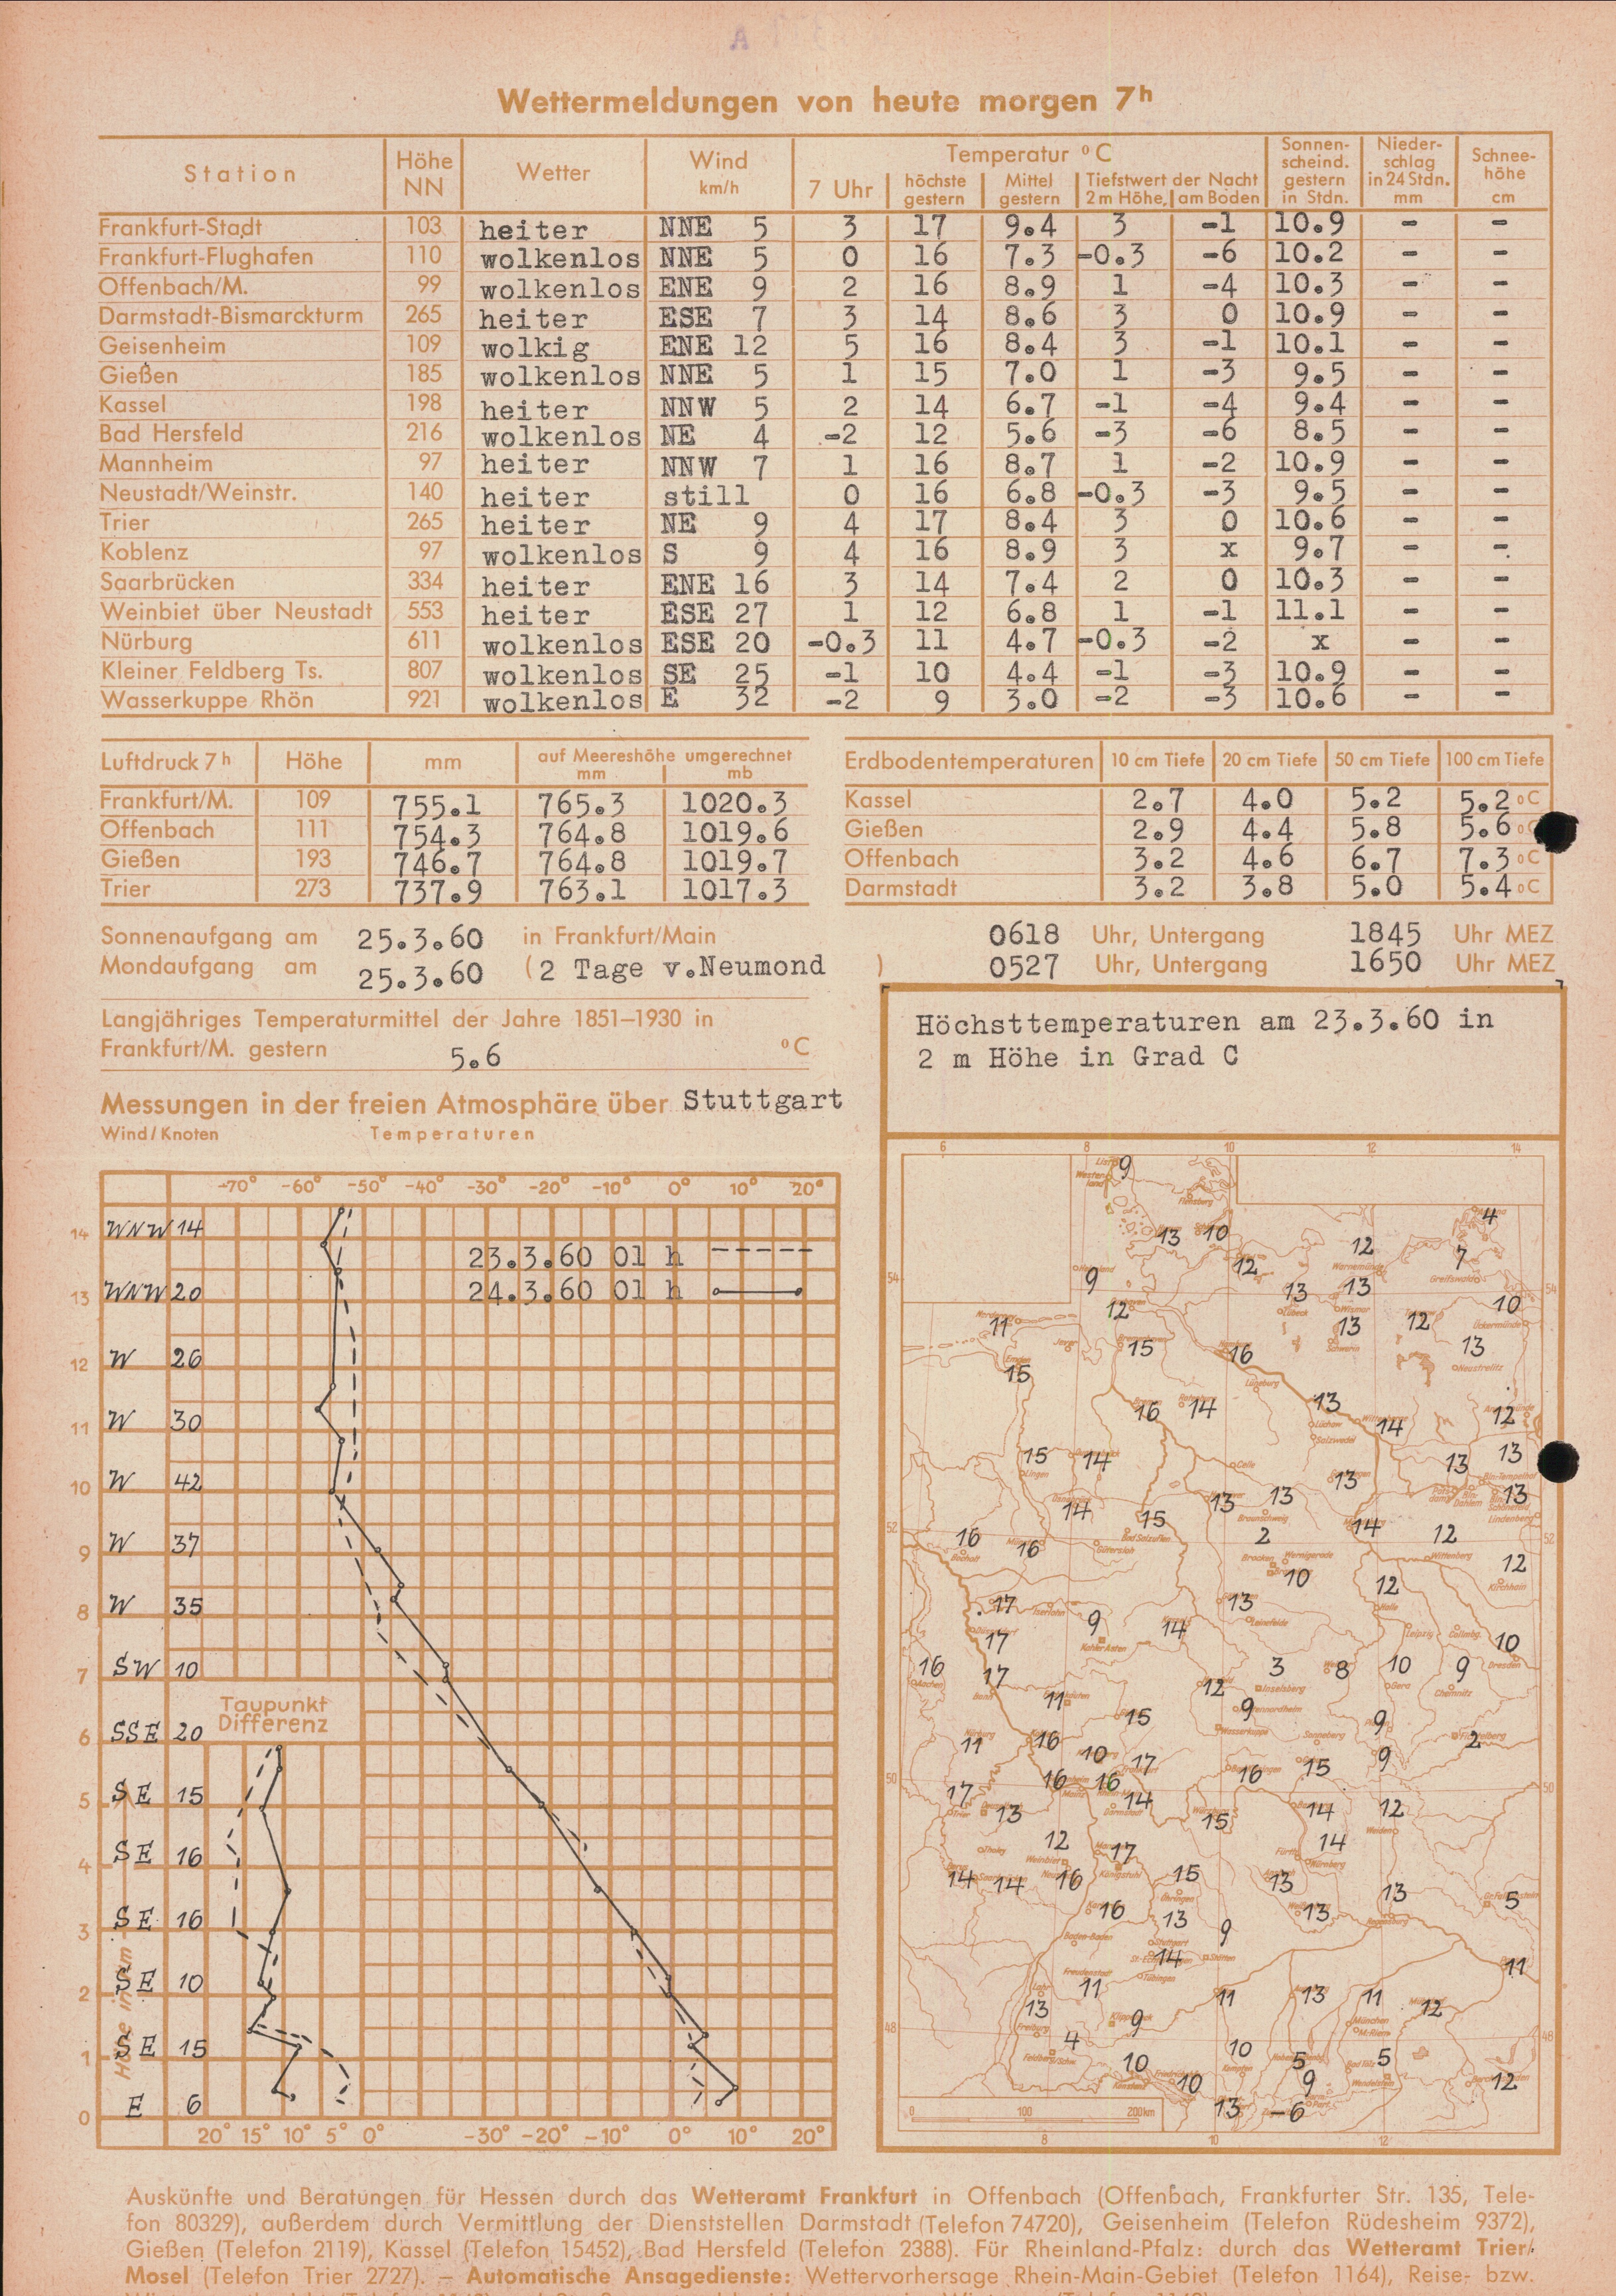 Wettermeldungen von heute morgen 7h
Station Höhe NN Wetter Wind km/h Temperatur °C 7 Uhr höchste gestern Mittel gestern Tiefstwert der Nacht 2 m Höhe, am Boden Sonnen-scheind. gestern in Stdn. Nieder-schlag in 24 Stdn. mm Schnee-höhe cm
Frankfurt-Stadt 103 heiter NNE 5 3 17 9.4 3 -1 10.9 - -
Frankfurt-Flughafen 110 wolkenlos NNE 5 0 16 7.3 -0.3 -6 10.2 - -
Offenbach/M. 99 wolkenlos ENE 9 2 16 8.9 1 -4 10.3 - -
Darmstadt-Bismarckturm 265 heiter ESE 7 3 14 8.6 3 0 10.9 - -
Geisenheim 109 wolkig ENE 12 5 16 8.4 3 -1 10.1 - -
Gießen 185 wolkenlos NNE 5 1 15 7.0 1 -3 9.5 - -
Kassel 198 heiter NNW 5 2 14 6.7 -1 -4 9.4 - -
Bad Hersfeld 216 wolkenlos NE 4 -2 12 5.6 -3 -6 8.5 - -
Mannheim 97 heiter NNW 7 1 16 8.7 1 -2 10.9 - -
Neustadt/Weinstr. 140 heiter still 0 16 6.8 -0.3 -3 9.5 - -
Trier 265 heiter NE 9 4 17 8.4 3 0 10.6 - -
Koblenz 97 wolkenlos S 9 4 16 8.9 3 x 9.7 - -
Saarbrücken 334 heiter ENE 16 3 14 7.4 2 0 10.3 - -
Weinbiet über Neustadt 553 heiter ESE 27 1 12 6.8 1 -1 11.1 - -
Nürburg 611 wolkenlos ESE 20 -0.3 11 4.7 -0.3 -2 x - -
Kleiner Feldberg Ts. 807 wolkenlos SE 25 -1 10 4.4 -1 -3 10.9 - -
Wasserkuppe Rhön 921 wolkenlos E 32 -2 9 3.0 -2 -3 10.6 - -
Luftdruck 7h Höhe mm auf Meereshöhe umgerechnet mm mb
Frankfurt/M. 109 755.1 765.3 1020.3
Offenbach 111 754.3 764.8 1019.6
Gießen 193 746.7 764.8 1019.7
Trier 273 737.9 763.1 1017.3
Erdbodentemperaturen 10 cm Tiefe 20 cm Tiefe 50 cm Tiefe 100 cm Tiefe
Kassel 2.7 4.0 5.2 5.2 °C
Gießen 2.9 4.4 5.8 5.6 °C
Offenbach 3.2 4.6 6.7 7.3 °C
Darmstadt 3.2 3.8 5.0 5.4 °C
Sonnenaufgang am 25.3.60 in Frankfurt/Main 0618 Uhr, Untergang 1845 Uhr MEZ
Mondaufgang am 25.3.60 (2 Tage v.Neumond ) 0527 Uhr, Untergang 1650 Uhr MEZ
Langjähriges Temperaturmittel der Jahre 1851–1930 in
Frankfurt/M. gestern 5.6 °C
Messungen in der freien Atmosphäre über Stuttgart
Wind/Knoten Temperaturen
-70° -60° -50° -40° -30° -20° -10° 0° 10° 20°
14 WNW 14
23.3.60 01 h
24.3.60 01 h
13 WNW 20
12 W 26
11 W 30
10 W 42
9 W 37
8 W 35
7 SW 10
Taupunkt
Differenz
6 SSE 20
5 SE 15
4 SE 16
3 SE 16
2 SE 10
1 SE 15
0 E 6
20° 15° 10° 5° 0° -30° -20° -10° 0° 10° 20°
Höchsttemperaturen am 23.3.60 in
2 m Höhe in Grad C
6 8 10 12 14
9
13 10 12 4 7
54 9 12 13 13 54
11 12 13 12 10
15 15 16 13
16 14 13 14 12
15 14 13 13 13
14 15 13 13 13
52 16 16 2 14 12 52
10 12 12
17 9 14 13
17 10
16 17 11 12 3 8 10 9
15 9 9 2
11 16 10 17 15 9
50 17 13 16 16 14 16 50
15 14 12
12 17 14
14 14 16 15 13 13 5
16 13 9 13
14 11
13 11 11 13 11 12
48 4 9 48
10 10 10 5 5
9 12
13 -6
0 100 200 km
8 10 12
Auskünfte und Beratungen für Hessen durch das Wetteramt Frankfurt in Offenbach (Offenbach, Frankfurter Str. 135, Tele-
fon 80329), außerdem durch Vermittlung der Dienststellen Darmstadt (Telefon 74720), Geisenheim (Telefon Rüdesheim 9372),
Gießen (Telefon 2119), Kassel (Telefon 15452), Bad Hersfeld (Telefon 2388). Für Rheinland-Pfalz: durch das Wetteramt Trier/
Mosel (Telefon Trier 2727). – Automatische Ansagedienste: Wettervorhersage Rhein-Main-Gebiet (Telefon 1164), Reise- bzw.